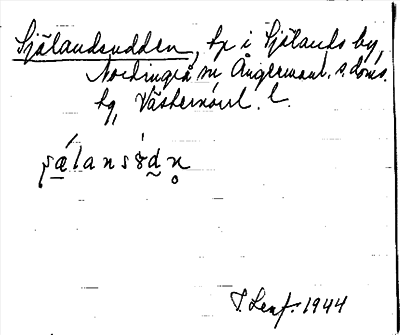 Själandsudden, tp i Själands by,
Nordingrå sn Ångermanl. s. doms.
tg, Västernorrl. l.
ʂǽ̱lansɞ̀d̰n̥
1944